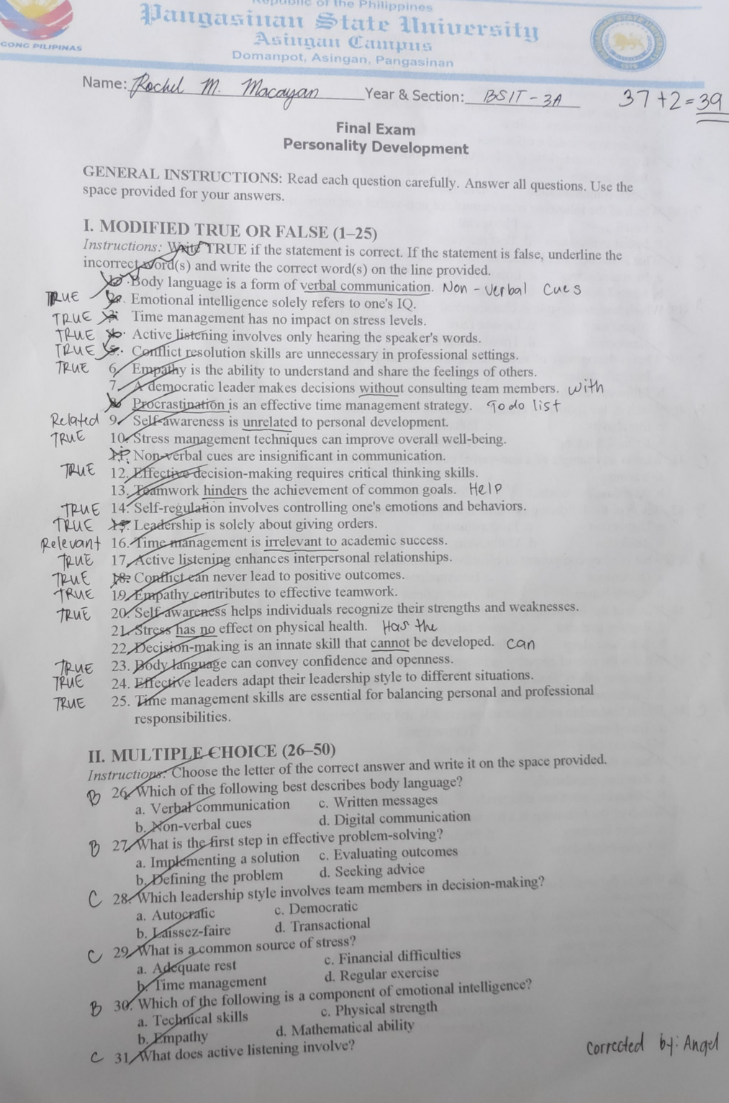 Republic of the Philippines
Pangasinan State University
Asingan Campus
Domanpot, Asingan, Pangasinan
GONG PILIPINAS
Name: Rochel M. Macayan Year & Section: BSIT - 3A 37 + 2 = 39
Final Exam
Personality Development
GENERAL INSTRUCTIONS: Read each question carefully. Answer all questions. Use the
space provided for your answers.
I. MODIFIED TRUE OR FALSE (1–25)
Instructions: Write TRUE if the statement is correct. If the statement is false, underline the
incorrect word(s) and write the correct word(s) on the line provided.
Body language is a form of verbal communication. Non-verbal cues
TRUE Emotional intelligence solely refers to one's IQ.
TRUE Time management has no impact on stress levels.
TRUE Active listening involves only hearing the speaker's words.
TRUE 5. Conflict resolution skills are unnecessary in professional settings.
TRUE 6. Empathy is the ability to understand and share the feelings of others.
7. A democratic leader makes decisions without consulting team members. with
Procrastination is an effective time management strategy. To do list
Related 9. Self-awareness is unrelated to personal development.
TRUE 10. Stress management techniques can improve overall well-being.
11. Non-verbal cues are insignificant in communication.
TRUE 12. Effective decision-making requires critical thinking skills.
13. Teamwork hinders the achievement of common goals. Help
TRUE 14. Self-regulation involves controlling one's emotions and behaviors.
TRUE 15. Leadership is solely about giving orders.
Relevant 16. Time management is irrelevant to academic success.
TRUE 17. Active listening enhances interpersonal relationships.
TRUE 18. Conflict can never lead to positive outcomes.
TRUE 19. Empathy contributes to effective teamwork.
TRUE 20. Self-awareness helps individuals recognize their strengths and weaknesses.
21. Stress has no effect on physical health. Has the
22. Decision-making is an innate skill that cannot be developed. can
TRUE 23. Body language can convey confidence and openness.
TRUE 24. Effective leaders adapt their leadership style to different situations.
TRUE 25. Time management skills are essential for balancing personal and professional
responsibilities.
II. MULTIPLE CHOICE (26–50)
Instructions: Choose the letter of the correct answer and write it on the space provided.
B 26. Which of the following best describes body language?
a. Verbal communication c. Written messages
b. Non-verbal cues d. Digital communication
B 27. What is the first step in effective problem-solving?
a. Implementing a solution c. Evaluating outcomes
b. Defining the problem d. Seeking advice
C 28. Which leadership style involves team members in decision-making?
a. Autocratic c. Democratic
b. Laissez-faire d. Transactional
C 29. What is a common source of stress?
a. Adequate rest c. Financial difficulties
b. Time management d. Regular exercise
B 30. Which of the following is a component of emotional intelligence?
a. Technical skills c. Physical strength
b. Empathy d. Mathematical ability
C 31. What does active listening involve?
Corrected by: Angel